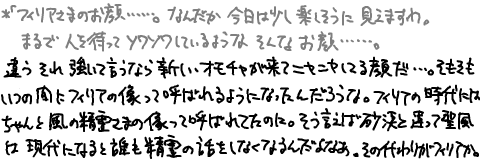 *「フィリアさまのお顔……。なんだか今日は少し楽しそうに見えますわ。
まるで人を待ってソワソワしているようなそんなお顔……。
違う それ 強いて言うなら新しいオモチャが来てニヤニヤしてる顔だ…。そもそも
いつの間にフィリアの像って呼ばれるようになったんだろうな。フィリアの時代には
ちゃんと風の精霊さまの像って呼ばれてたのに。そう言えば砂漠と違って聖風
は現代になると誰も精霊の話をしなくなるんだなあ。その代わりがフィリアか。